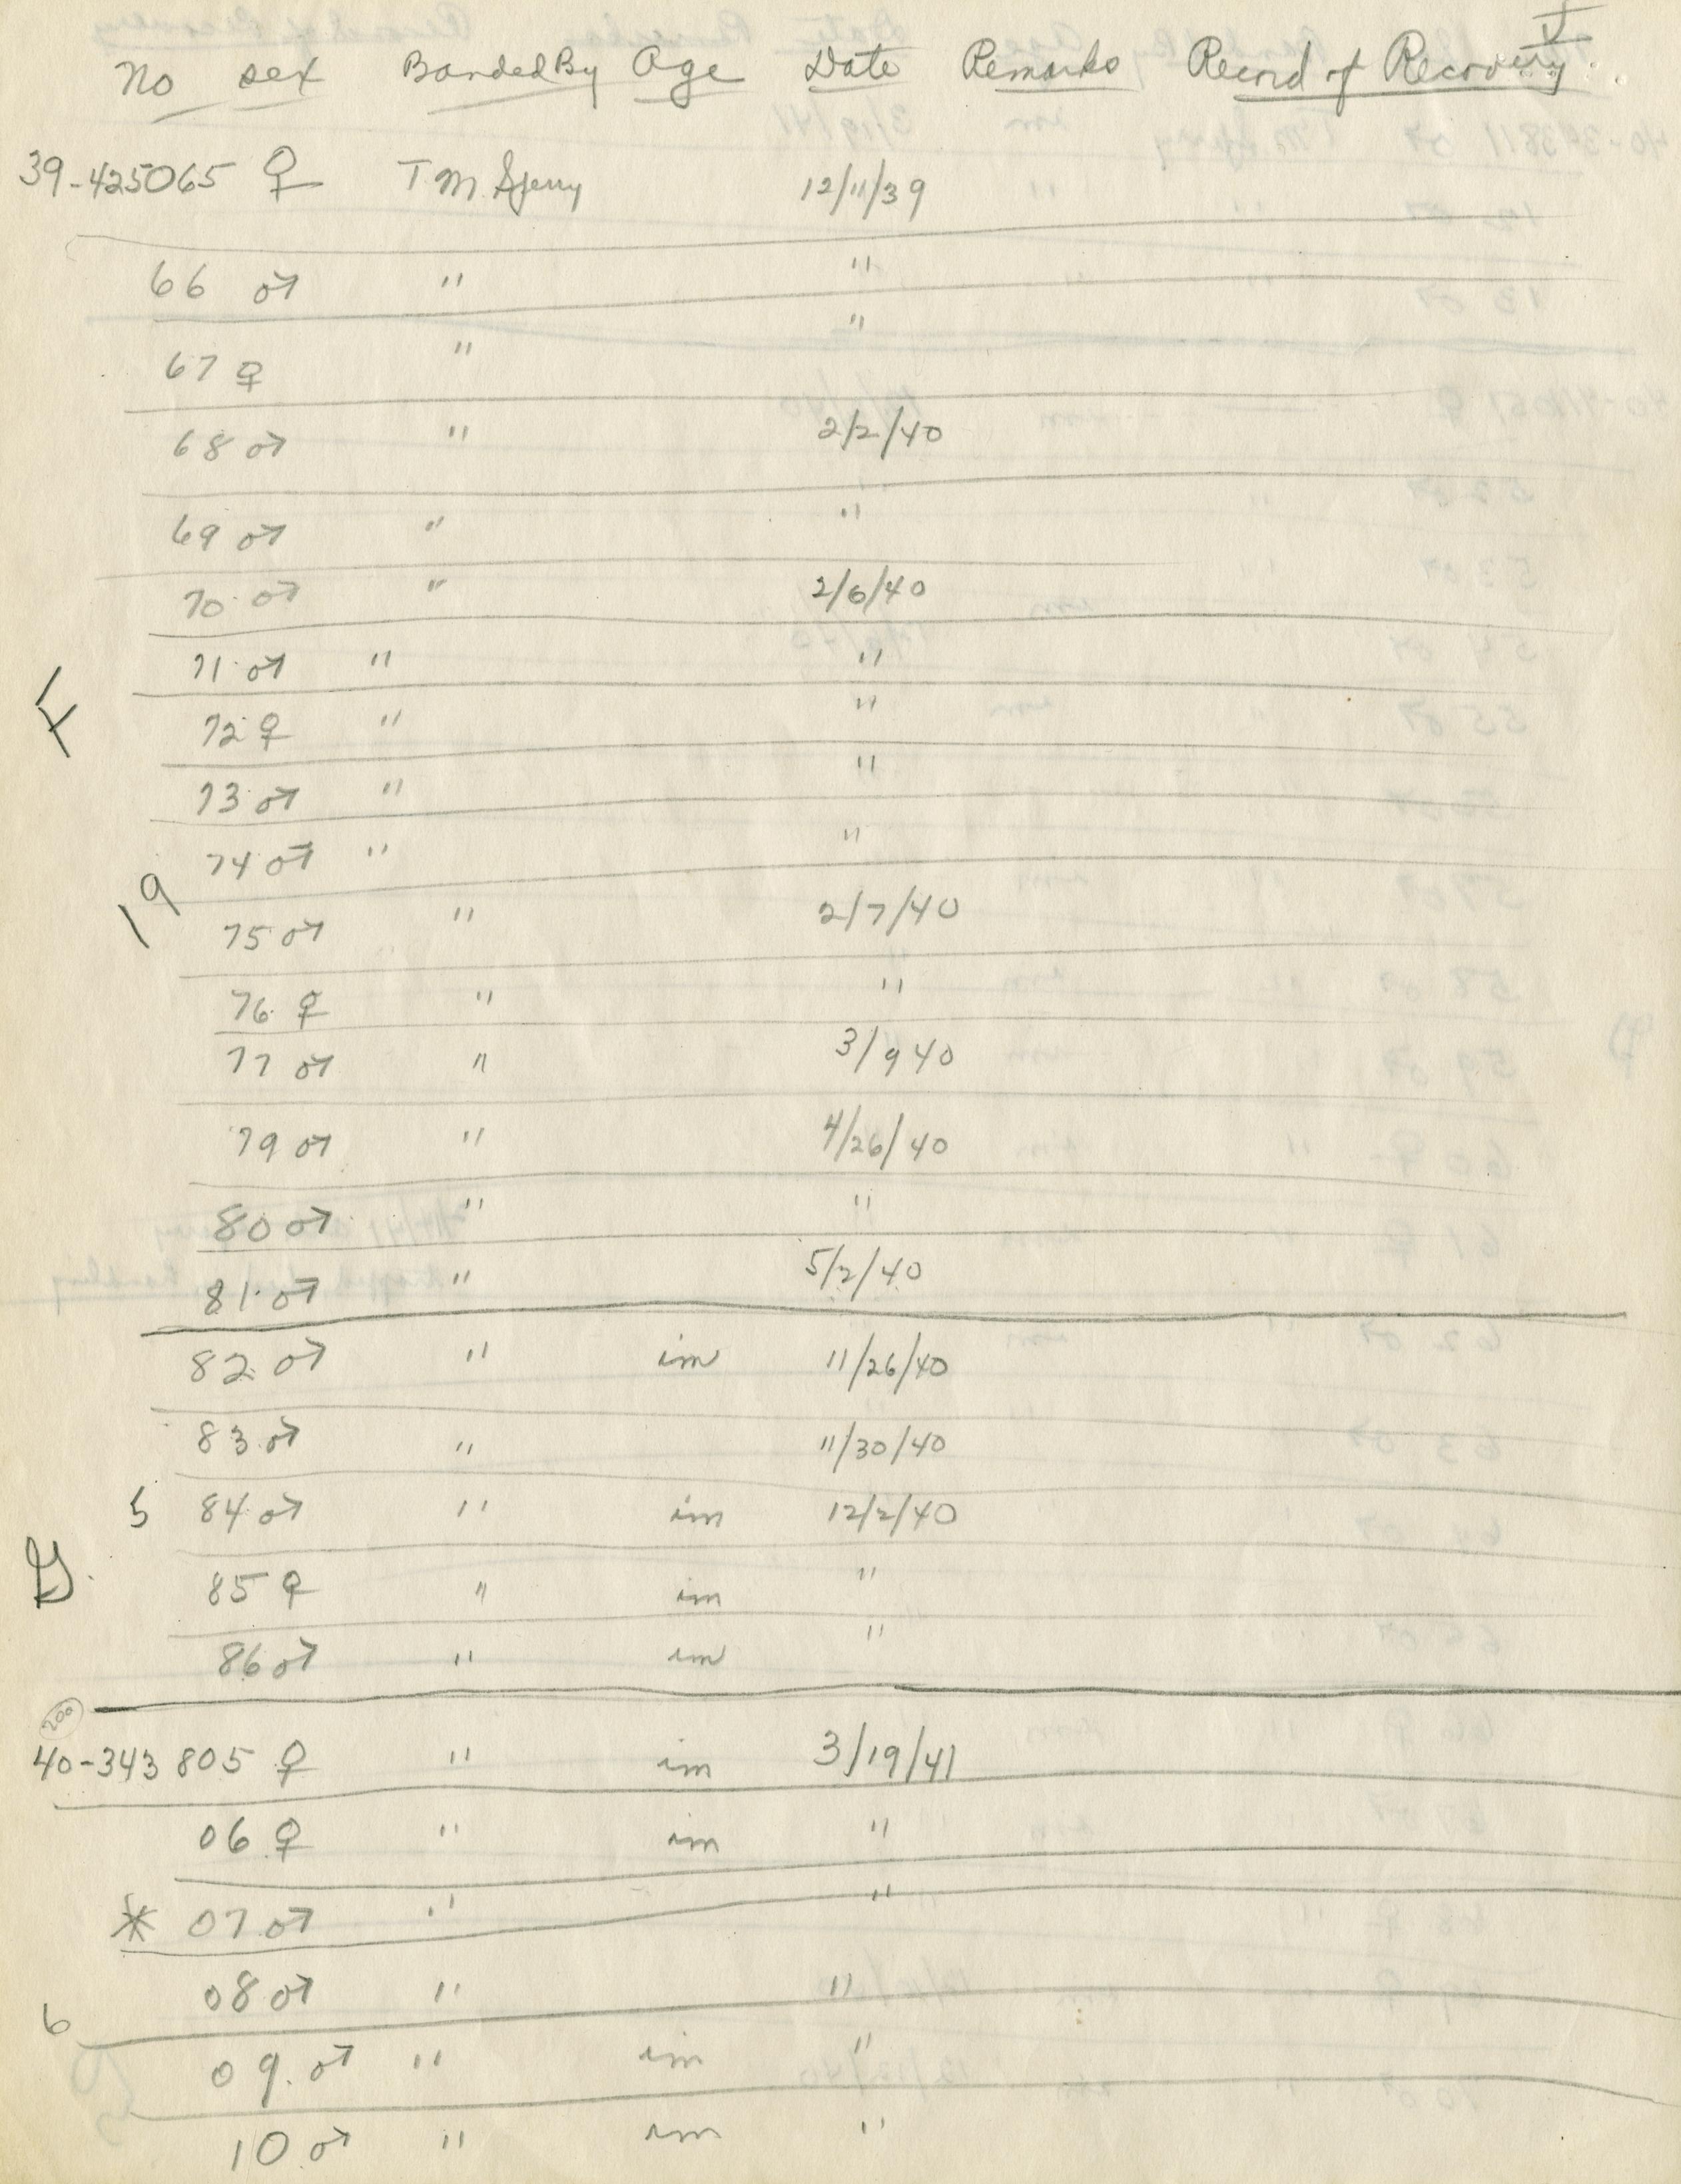 V
No sex Banded By Age Date Remarks Record of Recovery
39-425065 ♀ T. M. Sperry 12/11/39
66 ♂ " "
67 ♀ " "
68 ♂ " 2/2/40
69 ♂ " "
70 ♂ " 2/6/40
71 ♂ " "
F
72 ♀ " "
73 ♂ " "
74 ♂ " "
19
75 ♂ " 2/7/40
76 ♀ " "
77 ♂ " 3/9 40
79 ♂ " 4/26/40
80 ♂ " "
81 ♂ " 5/2/40
82 ♂ " im 11/26/40
83 ♂ " 11/30/40
5 84 ♂ " im 12/2/40
G.
85 ♀ " im "
86 ♂ " im "
200
40-343 805 ♀ " im 3/19/41
06 ♀ " im "
* 07 ♂ " "
08 ♂ " "
6
09 ♂ " im "
10 ♂ " im "